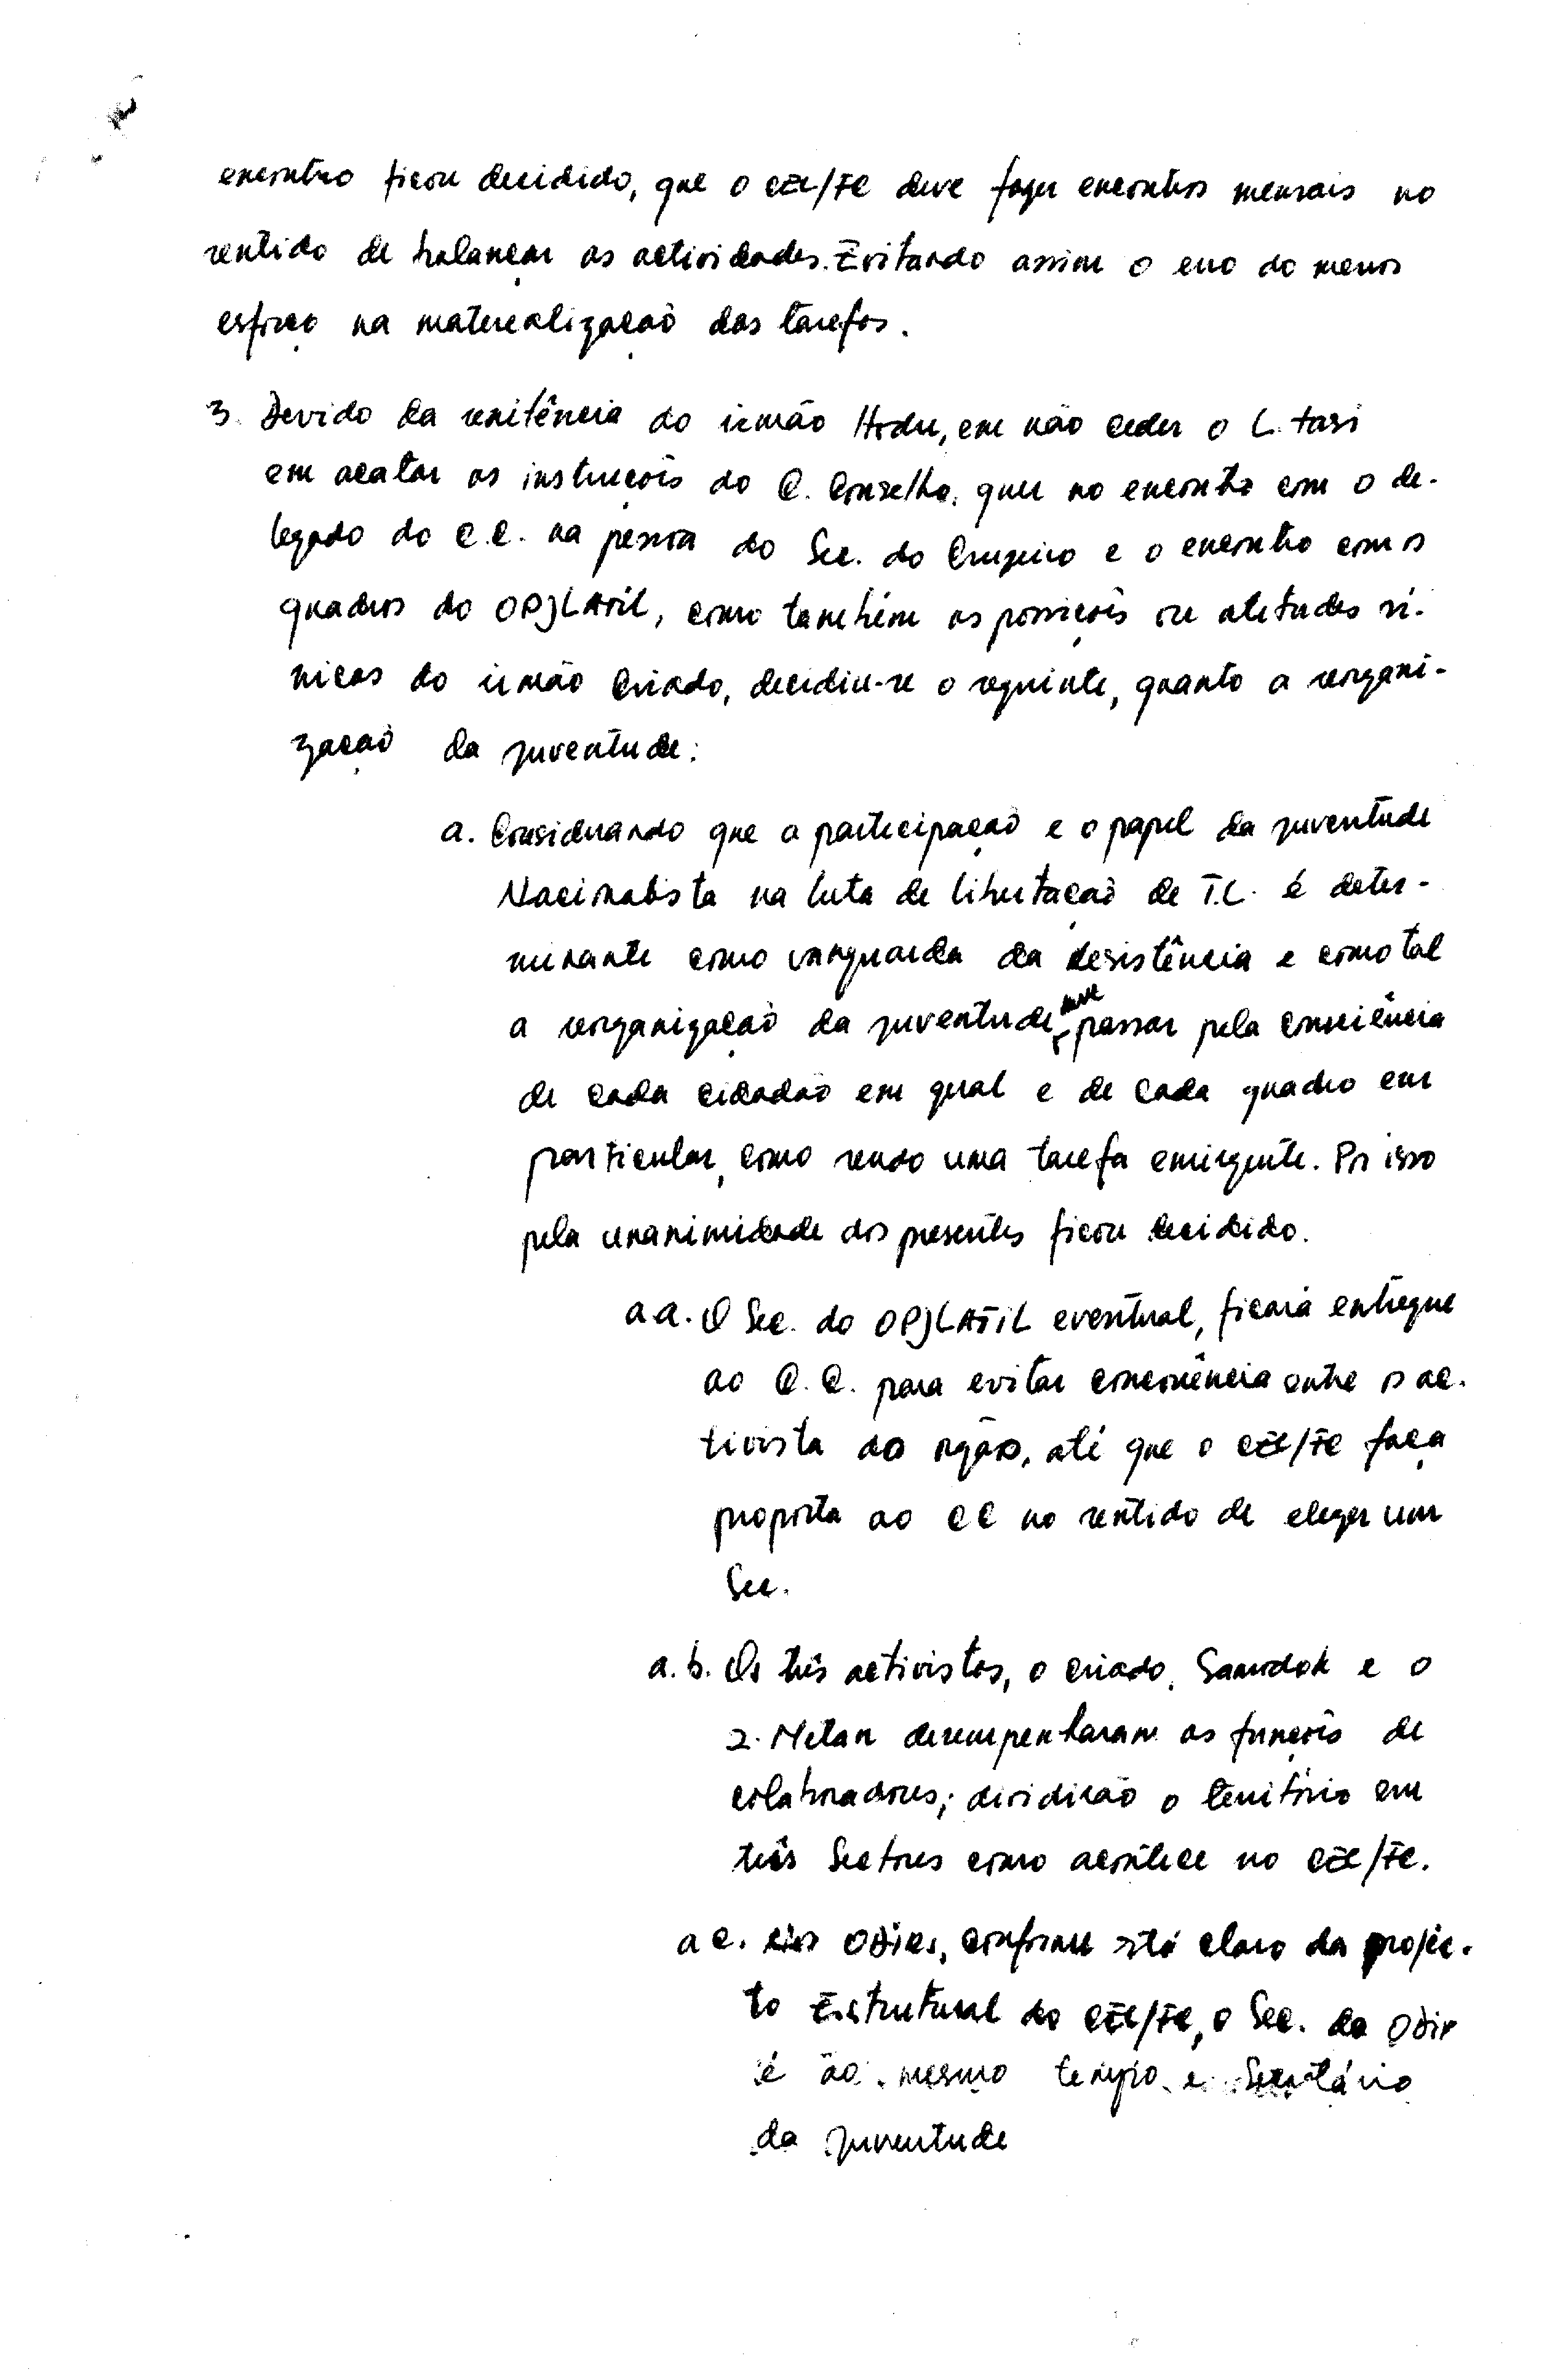 encontro ficou decidido, que o CEL/FC deve fazer encontros mensais no
sentido de balançar as actividades. Evitando assim o erro do menos
esforço na materealização das tarefas.
3. Devido da renitência do irmão Hodu, em não ceder o L. tasi
em acatar as instruções do C. Conselho, quer no encontro com o de-
legado do C.C. na pessoa do Sec. do Cruzeiro e o encontro com os
quadros do OPJLATIL, como também as possições ou atetudes sí-
nicas do irmão Criado, decidiu-se o seguinte, quanto a reorgani-
zação da juventude:
a. Considerando que a participação e o papel da juventude
Nacionalista na luta de libertação de T.L. é deter-
minante como vanguarda da resistência e como tal
a reorganização da juventude, deve passar pela consciência
de cada cidadão em geral e de cada quadro em
particular, como sendo uma tarefa emergente. Por isso
pela unanimidade dos presentes ficou decidido.
a.a. O Sec. do OPJLATIL eventual, ficará entregue
ao C.C. para evitar concorrência entre os ac-
tivista do orgão, até que o CEL/FC faça
proposta ao CC no sentido de eleger um
Sec.
a.b. Os três activistas, o Criado, Samodok e o
2. Metan desempenharam as funções de
colaboradores; dividirão o território em
três Sectores como acontece no CEL/FC.
a c. ODIRs, conforme está claro da projec-
to Estrutural do CEL/FC, o Sec. da ODIR
é ao mesmo tempo e Secretário
da juventude